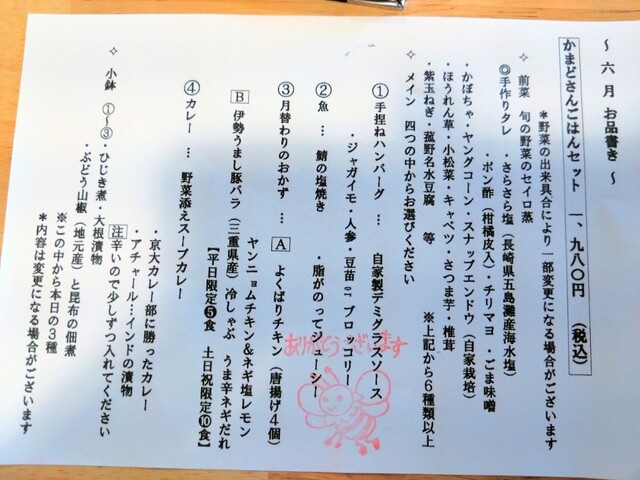 ～ 六 月 お品書き ～
かまどさんごはんセット 一、九八〇円 （税込）
＊野菜の出来具合により一部変更になる場合がございます
✧ 前菜 旬の野菜のセイロ蒸
◎手作りタレ ・さらさら塩（長崎県五島灘産海水塩）
・ポン酢（柑橘皮入）・チリマヨ ・ごま味噌
・かぼちゃ・ヤングコーン・スナップエンドウ（自家栽培）
・ほうれん草・小松菜・キャベツ・さつま芋・椎茸
・紫玉ねぎ・菰野名水豆腐 等 ※上記から６種類以上
✧ メイン 四つの中からお選びください
① 手捏ねハンバーグ … 自家製デミグラスソース
・ジャガイモ・人参・豆苗orブロッコリー
② 魚 … 鯖の塩焼き ・脂がのってジューシー
③ 月替わりのおかず … A よくばりチキン（唐揚げ４個）
ヤンニョムチキン&ネギ塩レモン
B 伊勢うまし豚バラ（三重県産）冷しゃぶ うま辛ネギだれ
【平日限定❺食 土日祝限定❿食】
④ カレー … 野菜添えスープカレー
・京大カレー部に勝ったカレー
・アチャール…インドの漬物
注 辛いので少しずつ入れてください
✧ 小鉢 ①～③・ひじき煮・大根漬物
・ぶどう山椒（地元産）と昆布の佃煮
※この中から本日の３種
＊内容は変更になる場合がございます
ありがとうございます